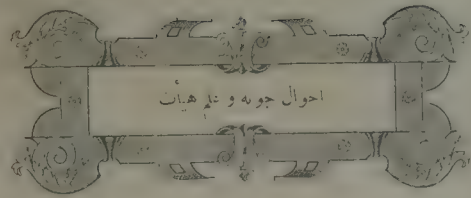 احوال جويه و علم هيأت